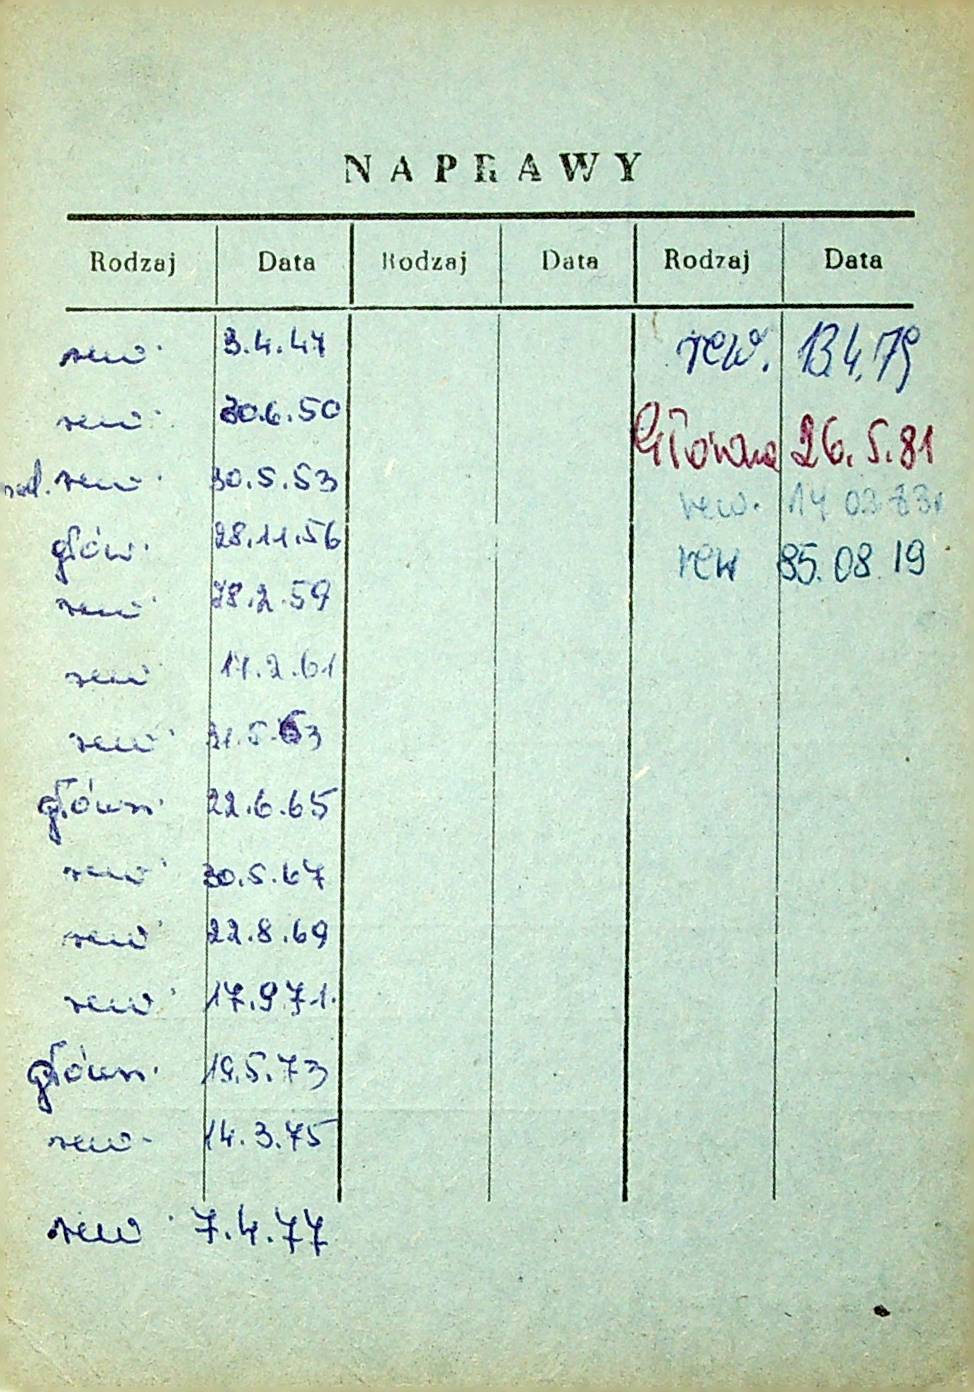 NAPRAWY
Rodzaj Data Rodzaj Data Rodzaj Data
rew. 3.4.47
rew. 30.6.50
rew. 30.5.53
główn. 28.11.56
rew. 28.2.59
rew. 17.2.61
rew. 31.5.63
główn. 22.6.65
rew. 30.5.67
rew. 22.8.69
rew. 17.9.71.
główn. 19.5.73
rew. 14.3.75
rew. 7.4.77
rew. 13.4.79
Główna 26.5.81
rew. 14 03 83r
rew 85.08.19